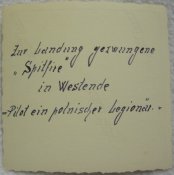 Zur Landung gezwungene
„Spitfire"
in Westende
-Pilot ein polnischer Legionär.-